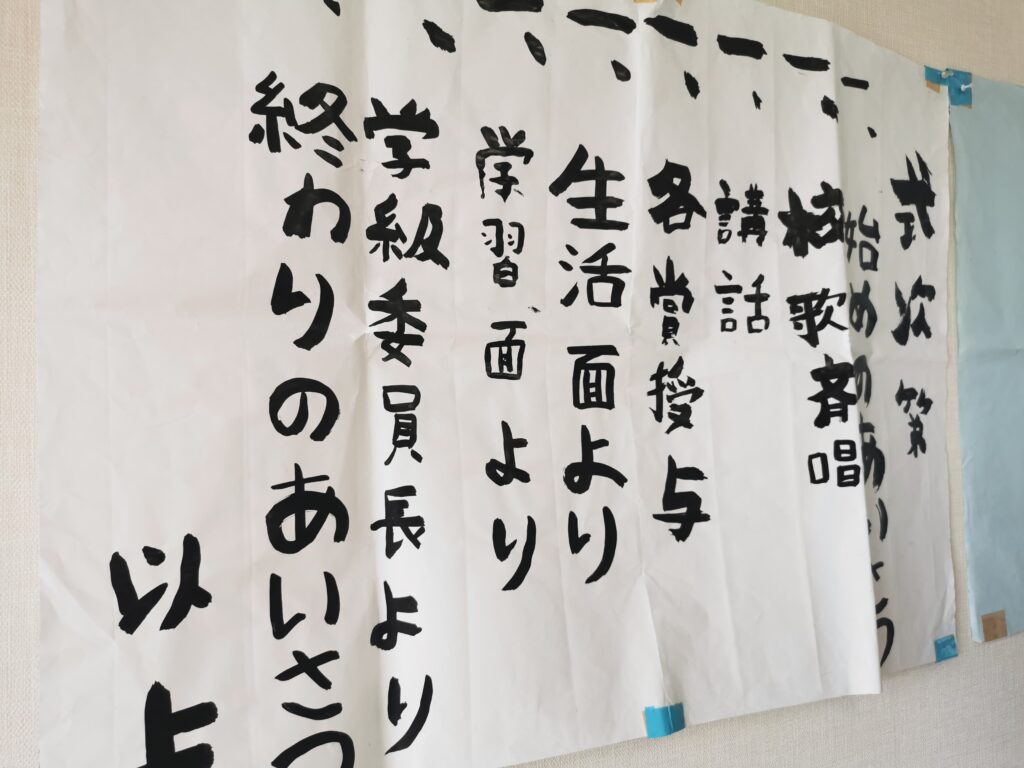 式次第
一、始めのあいさつ
一、校歌斉唱
一、講話
一、各賞授与
一、生活面より
一、学習面より
、学級委員長より
、終わりのあいさつ
以上